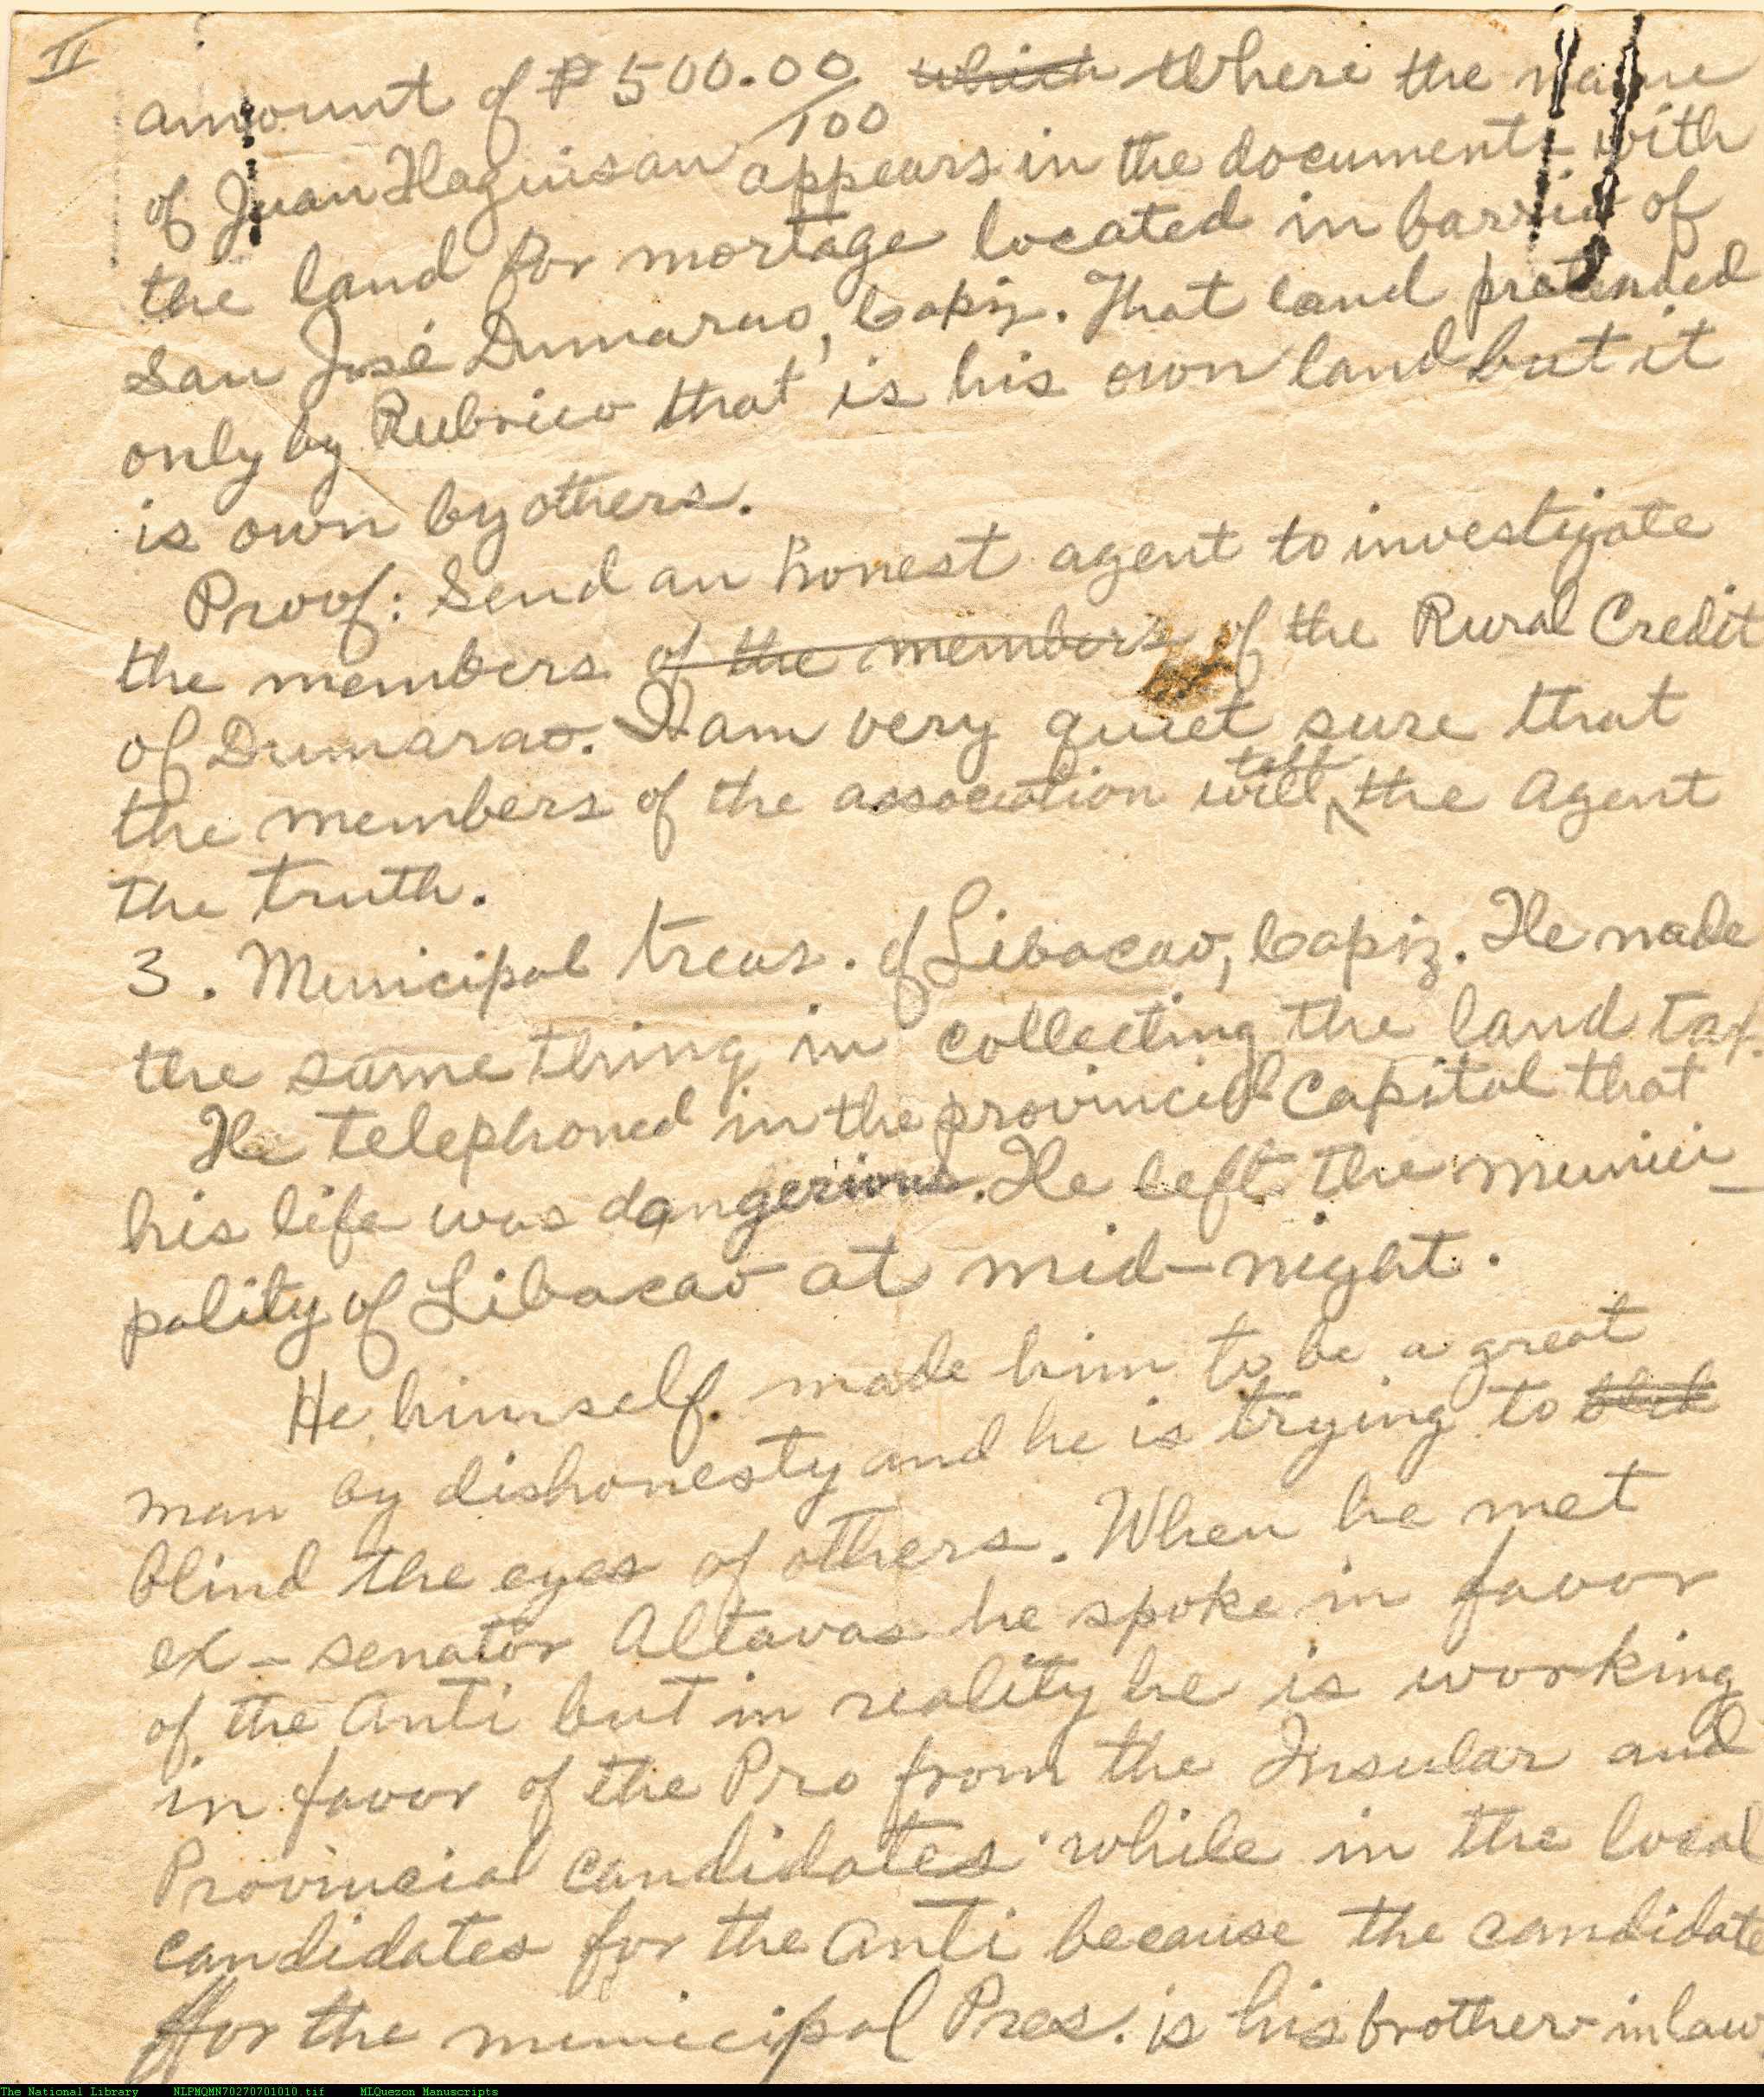 II
amount of ₱500.00/100 which Where the name
of Juan Haguisan appears in the documents with
the land for mortage located in barrio of
San José Dumarao, Capiz. That land pretended
only by Rubrico that is his own land but it
is own by others.
Proof: Send an honest agent to investigate
the members of the members of the Rural Credit
of Dumarao. I am very quiet sure that
the members of the association will tell the agent
the truth.
3. Municipal treas. of Libacao, Capiz. He made
the same thing in collecting the land tax.
He telephoned in the provincial Capitol that
his life was dangerious. He left the munici-
pality of Libacao at mid-night.
He himself made him to be a great
man by dishonesty and he is trying to
blind the eyes of others. When he met
ex-senator Altavas he spoke in favor
of the Anti but in reality he is working
in favor of the Pro from the Insular and
Provincial candidates while in the local
candidates for the Anti because the candidate
for the municipal Pres. is his brother-in law
The National Library NLPMQMN70270701010.tif MLQuezon Manuscripts